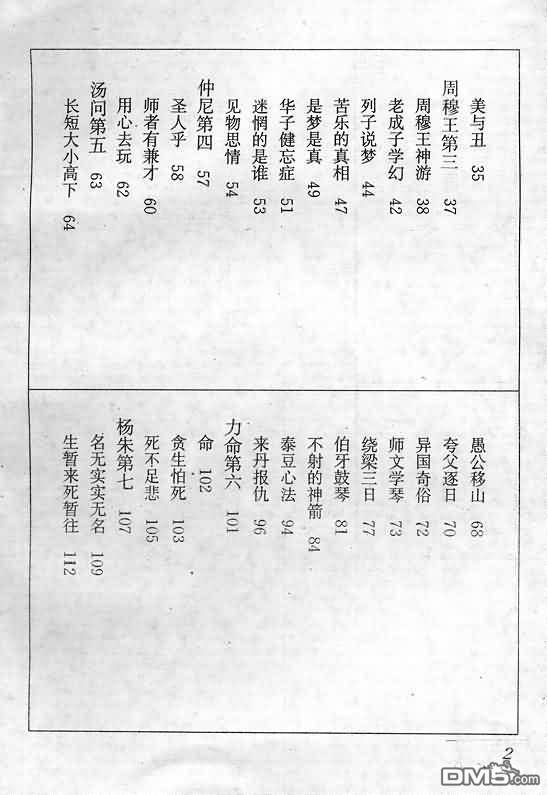 美与丑 35
周穆王第三 37
周穆王神游 38
老成子学幻 42
列子说梦 44
苦乐的真相 47
是梦是真 49
华子健忘症 51
迷惘的是谁 53
见物思情 54
仲尼第四 57
圣人乎 58
师者有兼才 60
用心去玩 62
汤问第五 63
长短大小高下 64
愚公移山 68
夸父逐日 70
异国奇俗 72
师文学琴 73
绕梁三日 77
伯牙鼓琴 81
不射的神箭 84
泰豆心法 94
来丹报仇 96
力命第六 101
命 102
贪生怕死 103
死不足悲 105
杨朱第七 107
名无实实无名 109
生暂来死暂往 112
2
DM5.com